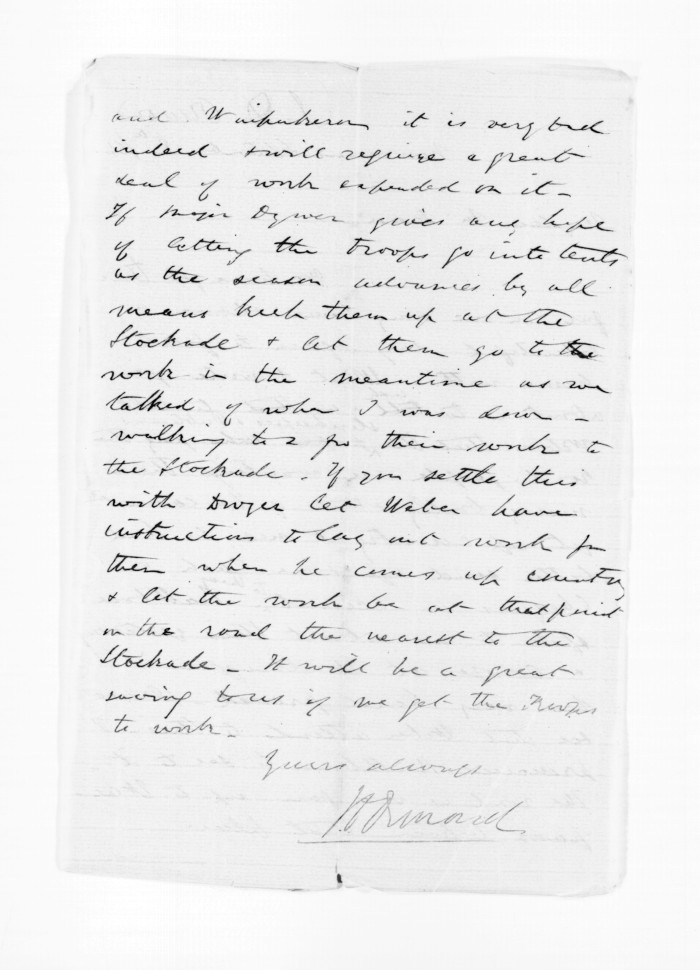 and Waipukurau it is very bad
indeed & will require a great
deal of work expended on it -
If Major Dwyer gives any hope
of letting the troops go into tents
as the season advances by all
means keep them up at the
Stockade & let them go to the
work in the meantime as we
talked of when I was down -
walking to & fro their work to
the Stockade. If you settle this
with Dwyer let Weber have
instructions to lay out work for
them when he comes up country
& let the work be at that point
on the road the nearest to the
Stockade - It will be a great
saving to us if we get the Troops
to work -
Yours always
J D Ormond